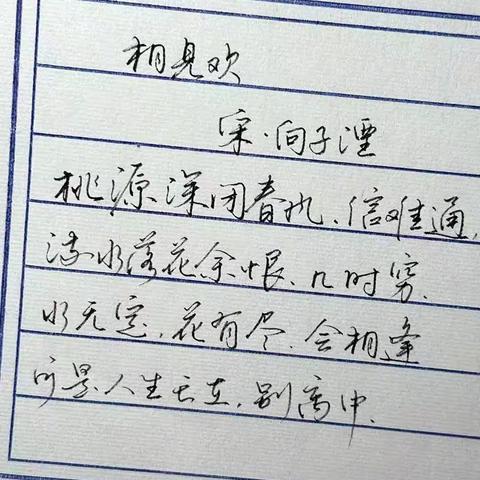 相见欢
宋·向子湮
桃源深闭春风、信难通,
流水落花余恨、几时穷.
水无定,花有尽.会相逢
可是人生长在,别离中.